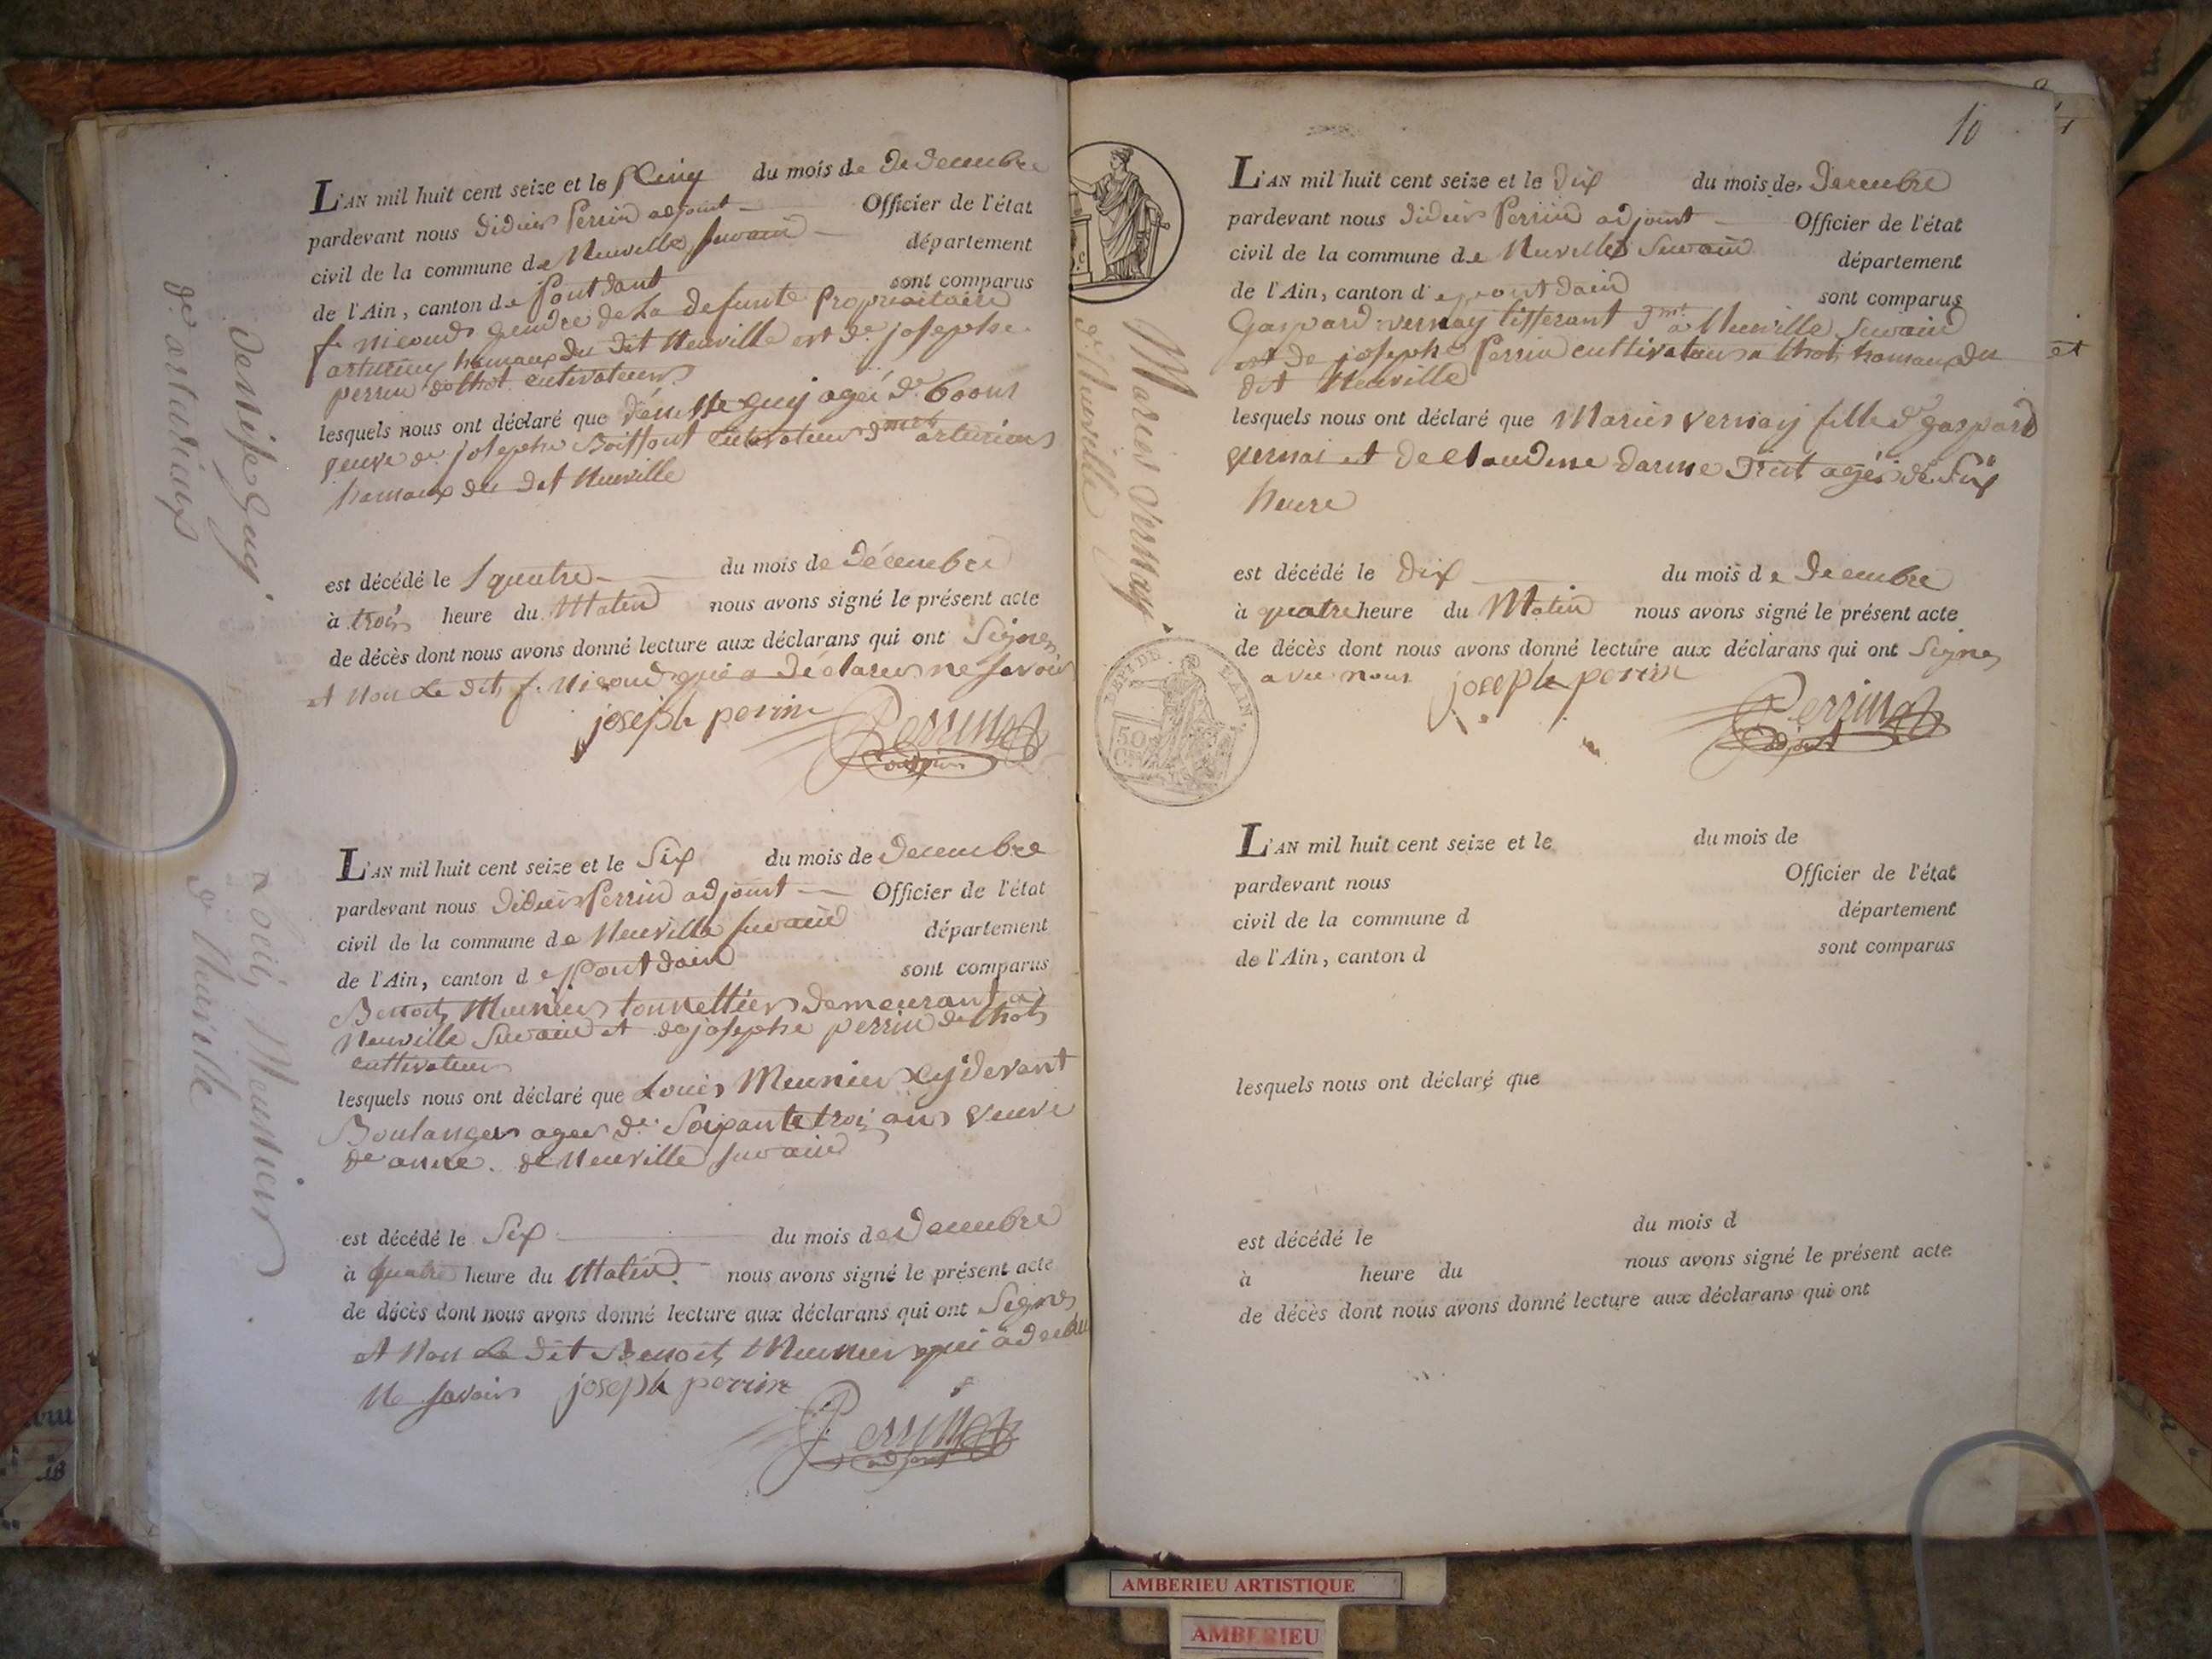 Denise Guy
d'arturieux
L'AN mil huit cent seize et le Cinq du mois de de decembre
pardevant nous didier Perrin adjoint Officier de l'état
civil de la commune de Neuville surain département
de l'Ain, canton de Pontdant sont comparus
f. nicoud gendre de La defunte Proprioitaire
arturieux hamaux du dit Neuville est de josephe
perrin de thol cutivateur
lesquels nous ont déclaré que dénisse guy ageé de 60 ans
veuve de josephe Boissont cutivateur dmt arturieux
hamaux du dit Neuville
est décédé le quatre du mois de décembre
à trois heure du Matin nous avons signé le présent acte
de décès dont nous avons donné lecture aux déclarans qui ont Signer
et Non Le dit f. nicoud qui a déclarer ne Savoir
joseph perrin
Perrin
adjoint
Loüis Meunier
d'Neuville
L'AN mil huit cent seize et le Six du mois de decembre
pardevant nous didier Perrin adjoint Officier de l'état
civil de la commune de Neuville surain département
de l'Ain, canton de Pont dain sont comparus
Benoit Meunier tonnellier demeurant a
Neuville Surain et de josephe perrin de thol
cultivateur
lesquels nous ont déclaré que Louis Meunier cy devant
Boulanger ager de Soixante trois ans veuve
de anne. de Neuville surain
est décédé le Six du mois de decembre
à quatre heure du Matin nous avons signé le présent acte
de décès dont nous avons donné lecture aux déclarans qui ont Signer
et Non Le dit Benoit Meunier qui a
Ne Savoir joseph perrin
Perrin
adjoint
10
Marie Vernay
d'Neuville
L'AN mil huit cent seize et le dix du mois de decembre
pardevant nous didier Perrin adjoint Officier de l'état
civil de la commune de Neuville Surain département
de l'Ain, canton de pont dain sont comparus
Gaspard vernay tisserant dmt a Neuville Surain
et de josephe Perrin cultivateur a thol hamaux du
dit Neuville
lesquels nous ont déclaré que Marie vernay fille de gaspard
vernai et de claudine darme agée de Six
heure
est décédé le dix du mois de decembre
à quatre heure du Matin nous avons signé le présent acte
de décès dont nous avons donné lecture aux déclarans qui ont Signer
avec nous joseph perrin
Perrin
adjoint
DEP. DE L'AIN
50
L'AN mil huit cent seize et le du mois de
pardevant nous Officier de l'état
civil de la commune d département
de l'Ain, canton d sont comparus
lesquels nous ont déclaré que
est décédé le du mois d
à heure du nous avons signé le présent acte
de décès dont nous avons donné lecture aux déclarans qui ont
AMBERIEU ARTISTIQUE
AMBERIEU